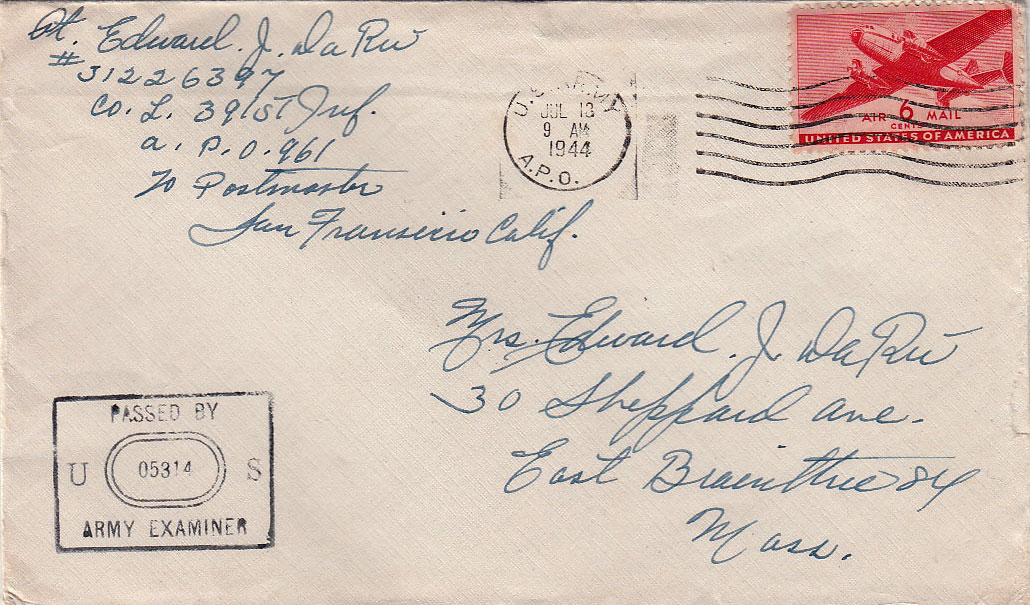 Pvt. Edward. J. DaRu
# 31226397
Co. L. 391st Inf.
A. P. O. 961
To Postmaster
San Francisco Calif.
U.S. ARMY
JUL 13
9 AM
1944
A.P.O.
AIR 6 MAIL
CENTS
UNITED STATES OF AMERICA
Mrs. Edward. J. DaRu
30 Sheppard Ave.
East Braintree 84
Mass.
PASSED BY
U 05314 S
ARMY EXAMINER